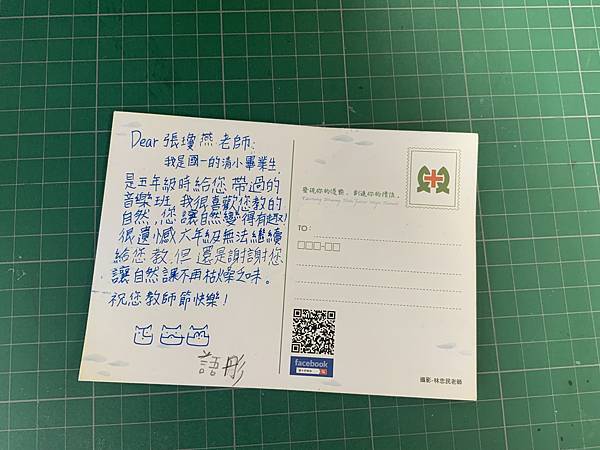 Dear 張瓊燕老師:
我是國一的清小畢業生,
是五年級時給您帶過的
音樂班,我很喜歡您教的
自然,您讓自然變得有趣!
很遺憾六年級無法繼續
給您教,但還是謝謝您
讓自然課不再枯燥乏味。
祝您教師節快樂!
語彤
發現你的優勢,創造你的價值。
TO:
facebook
攝影-林忠民老師